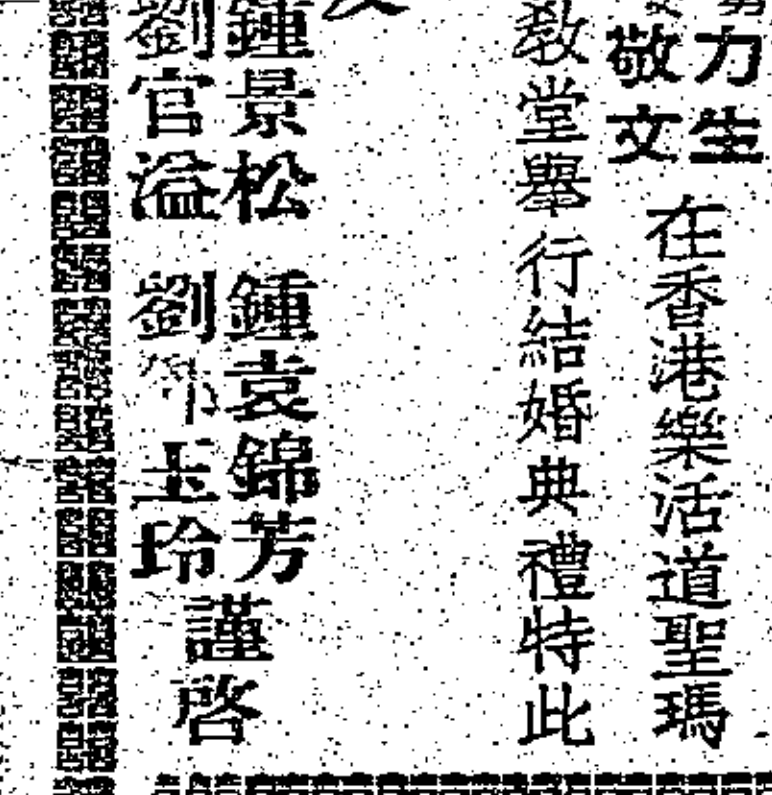 力生
敬文
在香港樂活道聖瑪
教堂舉行結婚典禮特此
鍾景松 鍾袁錦芳
劉官溢 劉鄧玉玲
謹啓